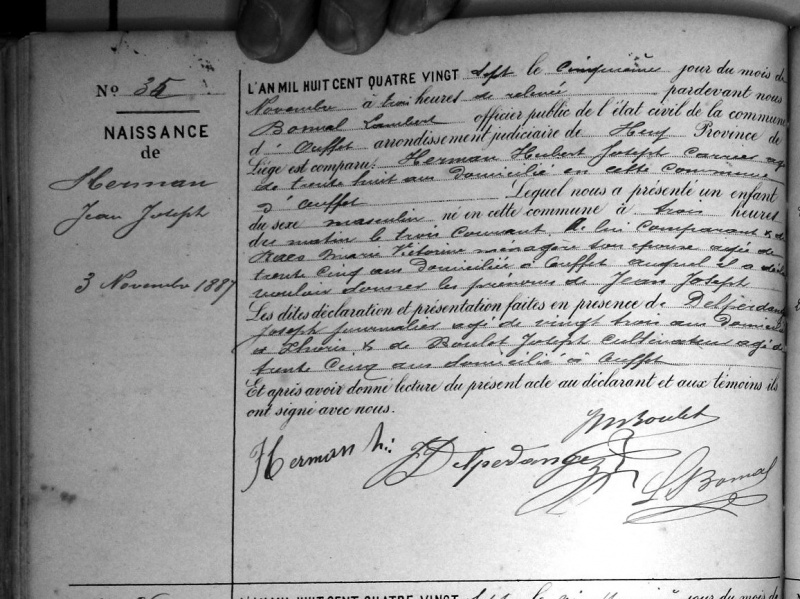 No 35
NAISSANCE
de
Herman
Jean Joseph
3 Novembre 1887
L'AN MIL HUIT CENT QUATRE VINGT Sept le Cinquième jour du mois de
Novembre à trois heures de relevée pardevant nous
Bomal Lambert officier public de l'état civil de la commune
d'Ouffet arrondissement judiciaire de Huy Province de
Liége est comparu: Herman Hubert Joseph carrier agé
de trente huit ans domicilié en cette commune
d'Ouffet Lequel nous a présenté un enfant
du sexe masculin né en cette commune à trois heures
du matin le trois courant, de lui comparant & de
Marie Victorine ménagère son épouse agée de
trente cinq ans domiciliée à Ouffet auquel il a déclaré
vouloir donner les prénoms de Jean Joseph
Les dites déclaration et présentation faites en présence de Delperdange
Joseph journalier agé de vingt trois ans domicilié
à & de Boulet Joseph cultivateur agé de
trente cinq ans domicilié à Ouffet
Et après avoir donné lecture du présent acte au déclarant et aux témoins ils
ont signé avec nous.
Boulet
Herman h: Delperdange
L Bomal
L'AN MIL HUIT CENT QUATRE VINGT Sept le jour du mois de